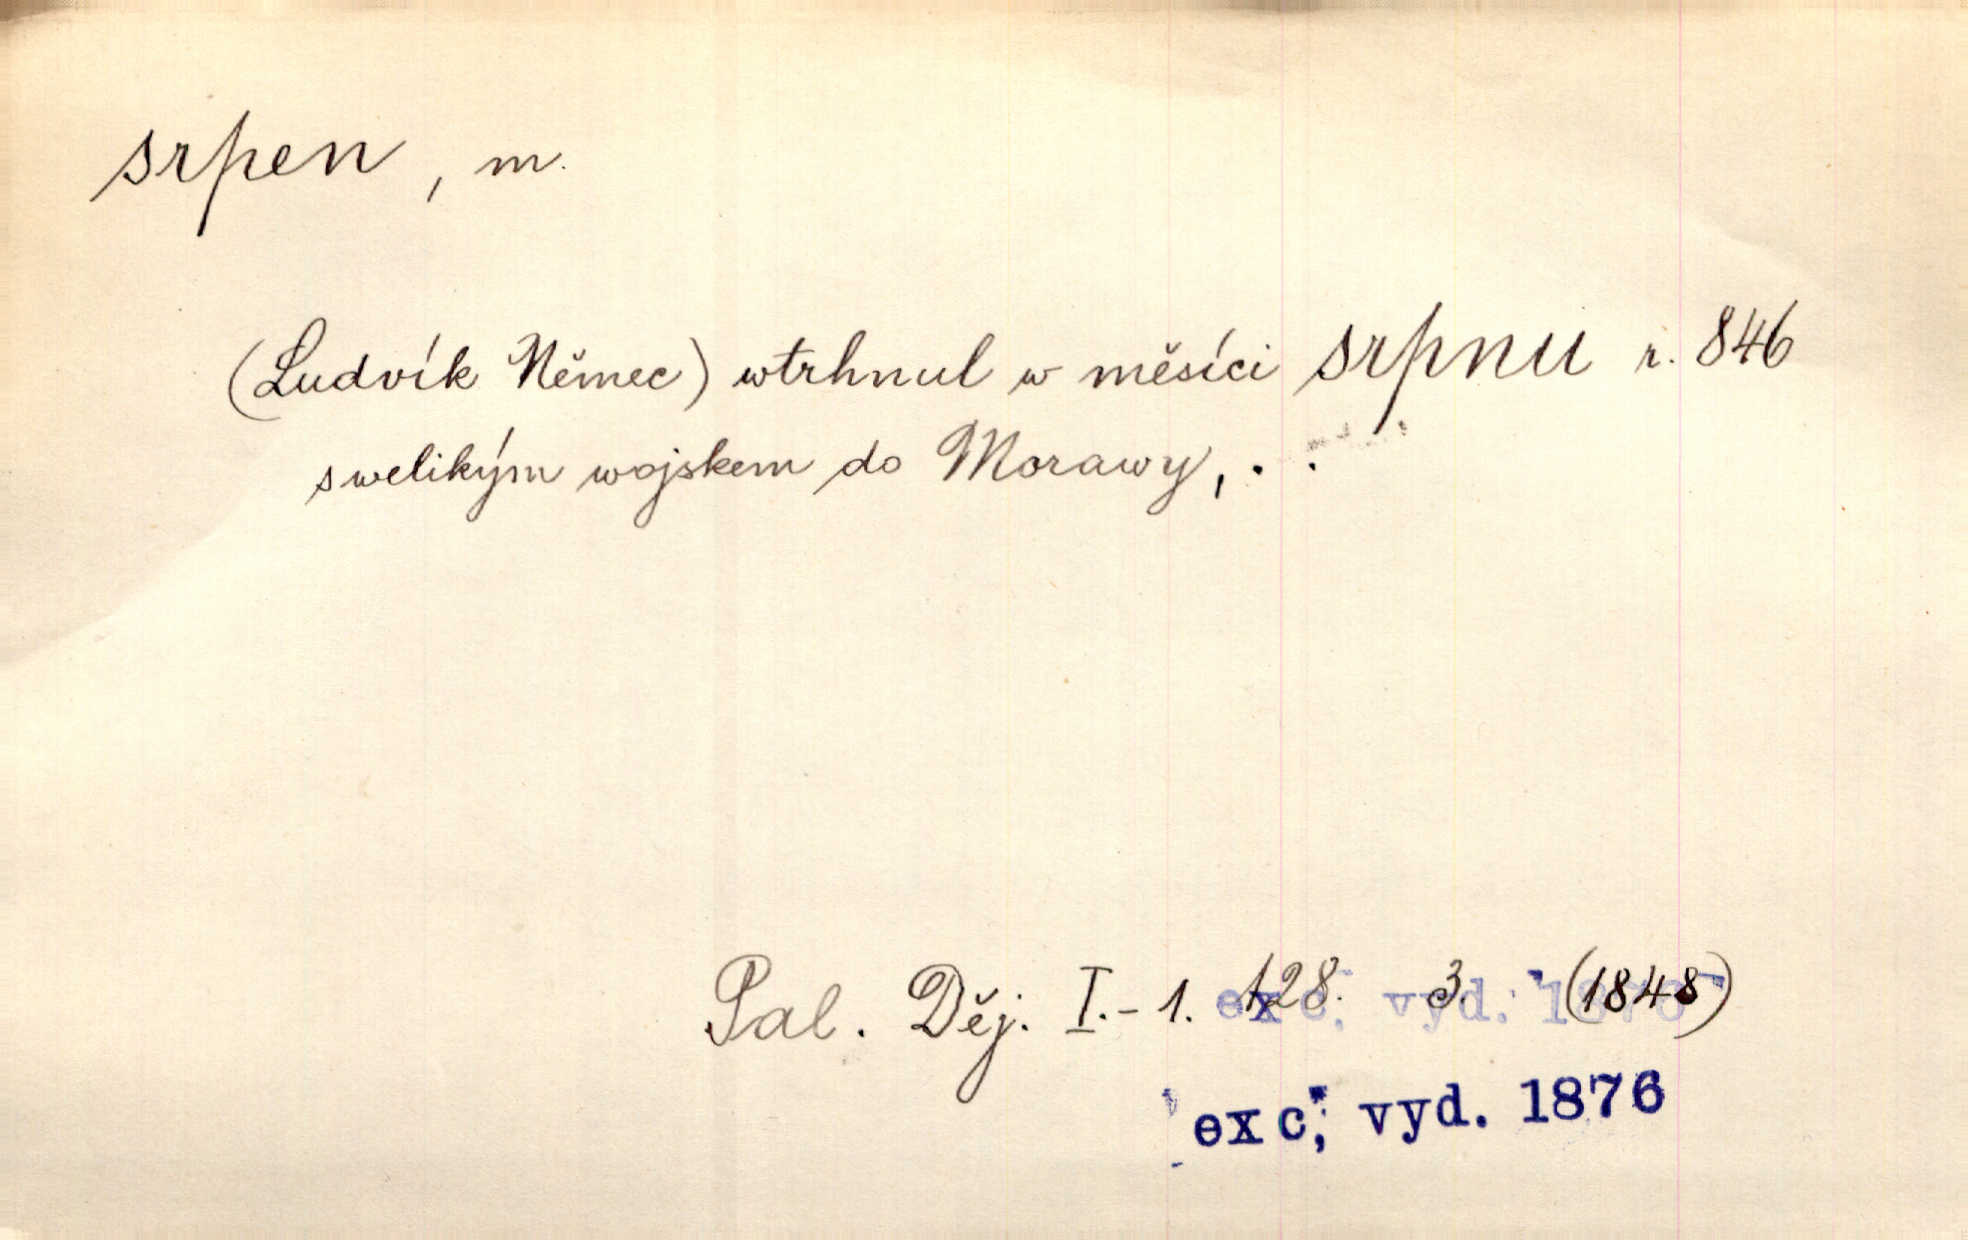 srpen, m.
(Ludvík Němec) wtrhnul w měsíci srpnu r. 846
s welikým wojskem do Morawy, . .
Pal. Děj. I.-1. 128. 3. (1848)
exc, vyd. 1876
exc, vyd. 1876